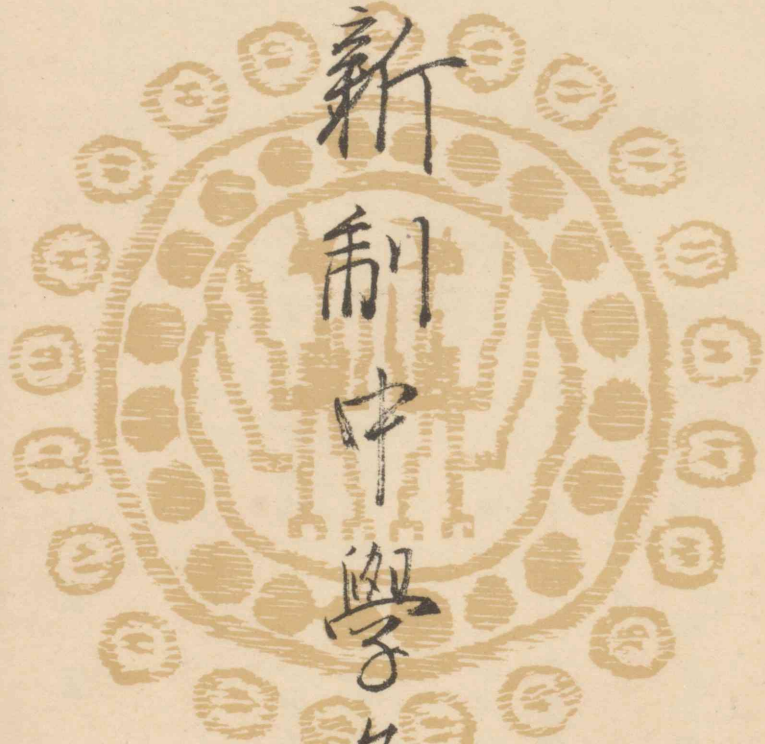 新制中學